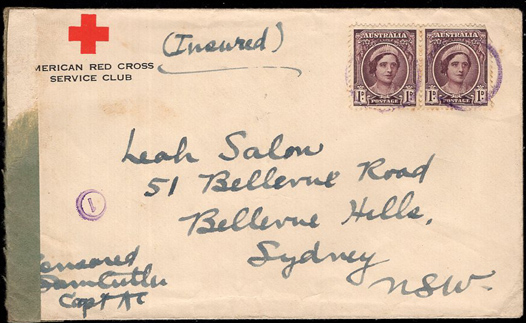 MERICAN RED CROSS
SERVICE CLUB
(Insured)
AUSTRALIA AUSTRALIA
1D 1D 1D 1D
POSTAGE POSTAGE
Leah Salon
51 Bellevue Road
Bellevue Hills,
Sydney
NSW.
1
ensored
Capt AC